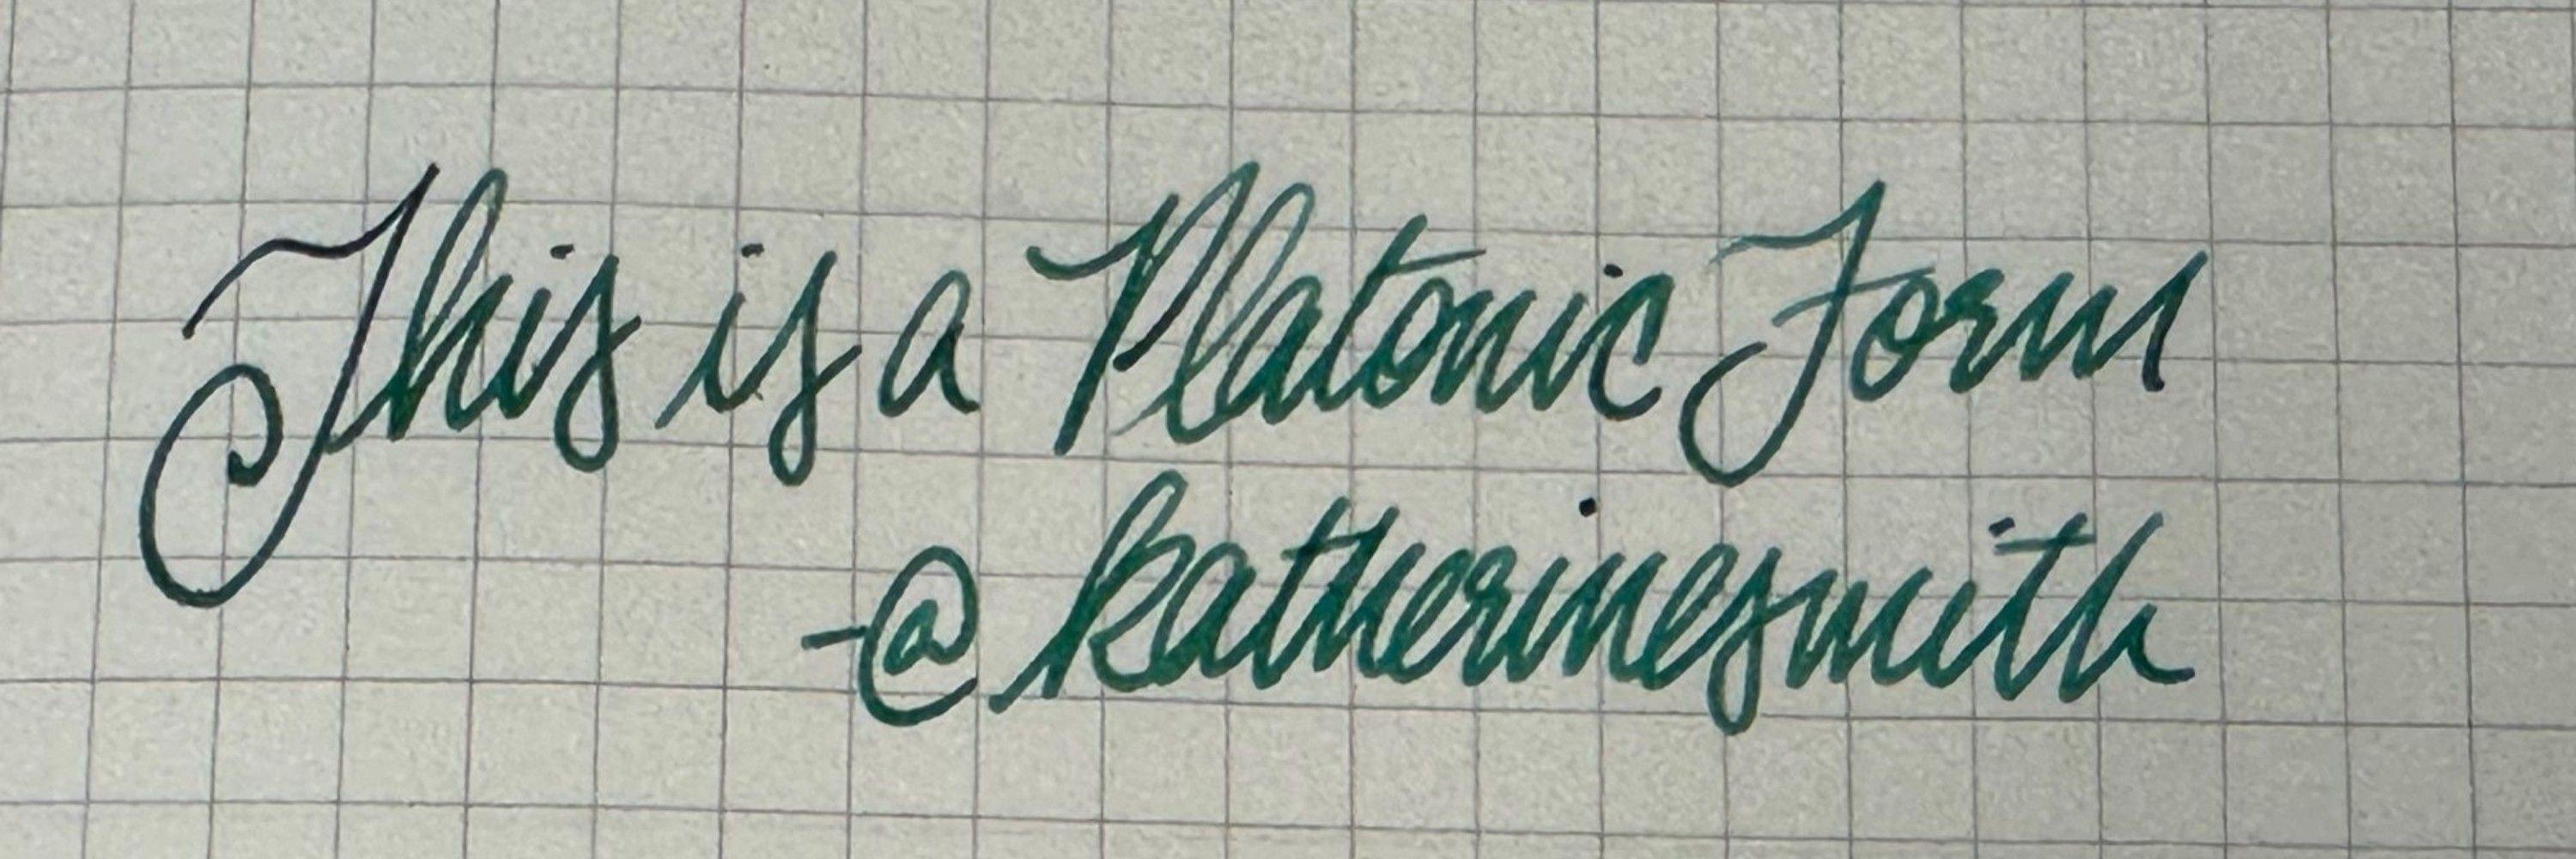 This is a Platonic Form
-@katherinesmith